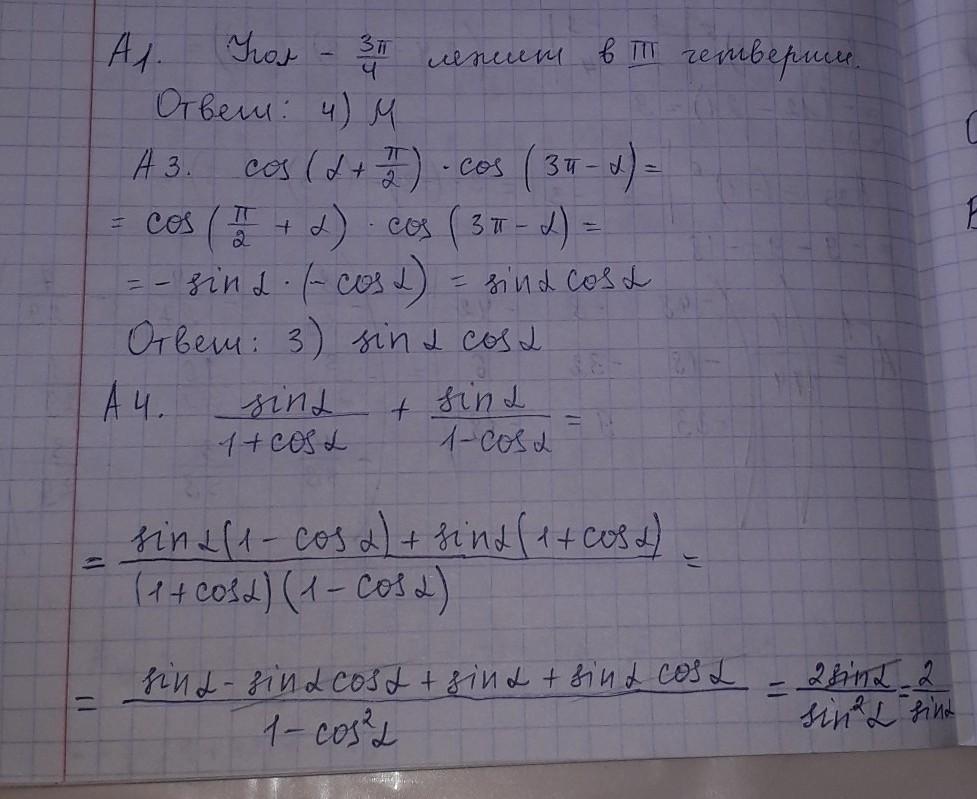 A1. Угол - 3π/4 лежит в III четверти.
Ответ: 4) M
A3. cos(α + π/2) · cos(3π - α) =
= cos(π/2 + α) · cos(3π - α) =
= - sin α · (- cos α) = sin α cos α
Ответ: 3) sin α cos α
A4. sin α/(1 + cos α) + sin α/(1 - cos α) =
= (sin α(1 - cos α) + sin α(1 + cos α))/((1 + cos α)(1 - cos α)) =
= (sin α - sin α cos α + sin α + sin α cos α)/(1 - cos² α) = 2 sin α/sin² α = 2/sin α